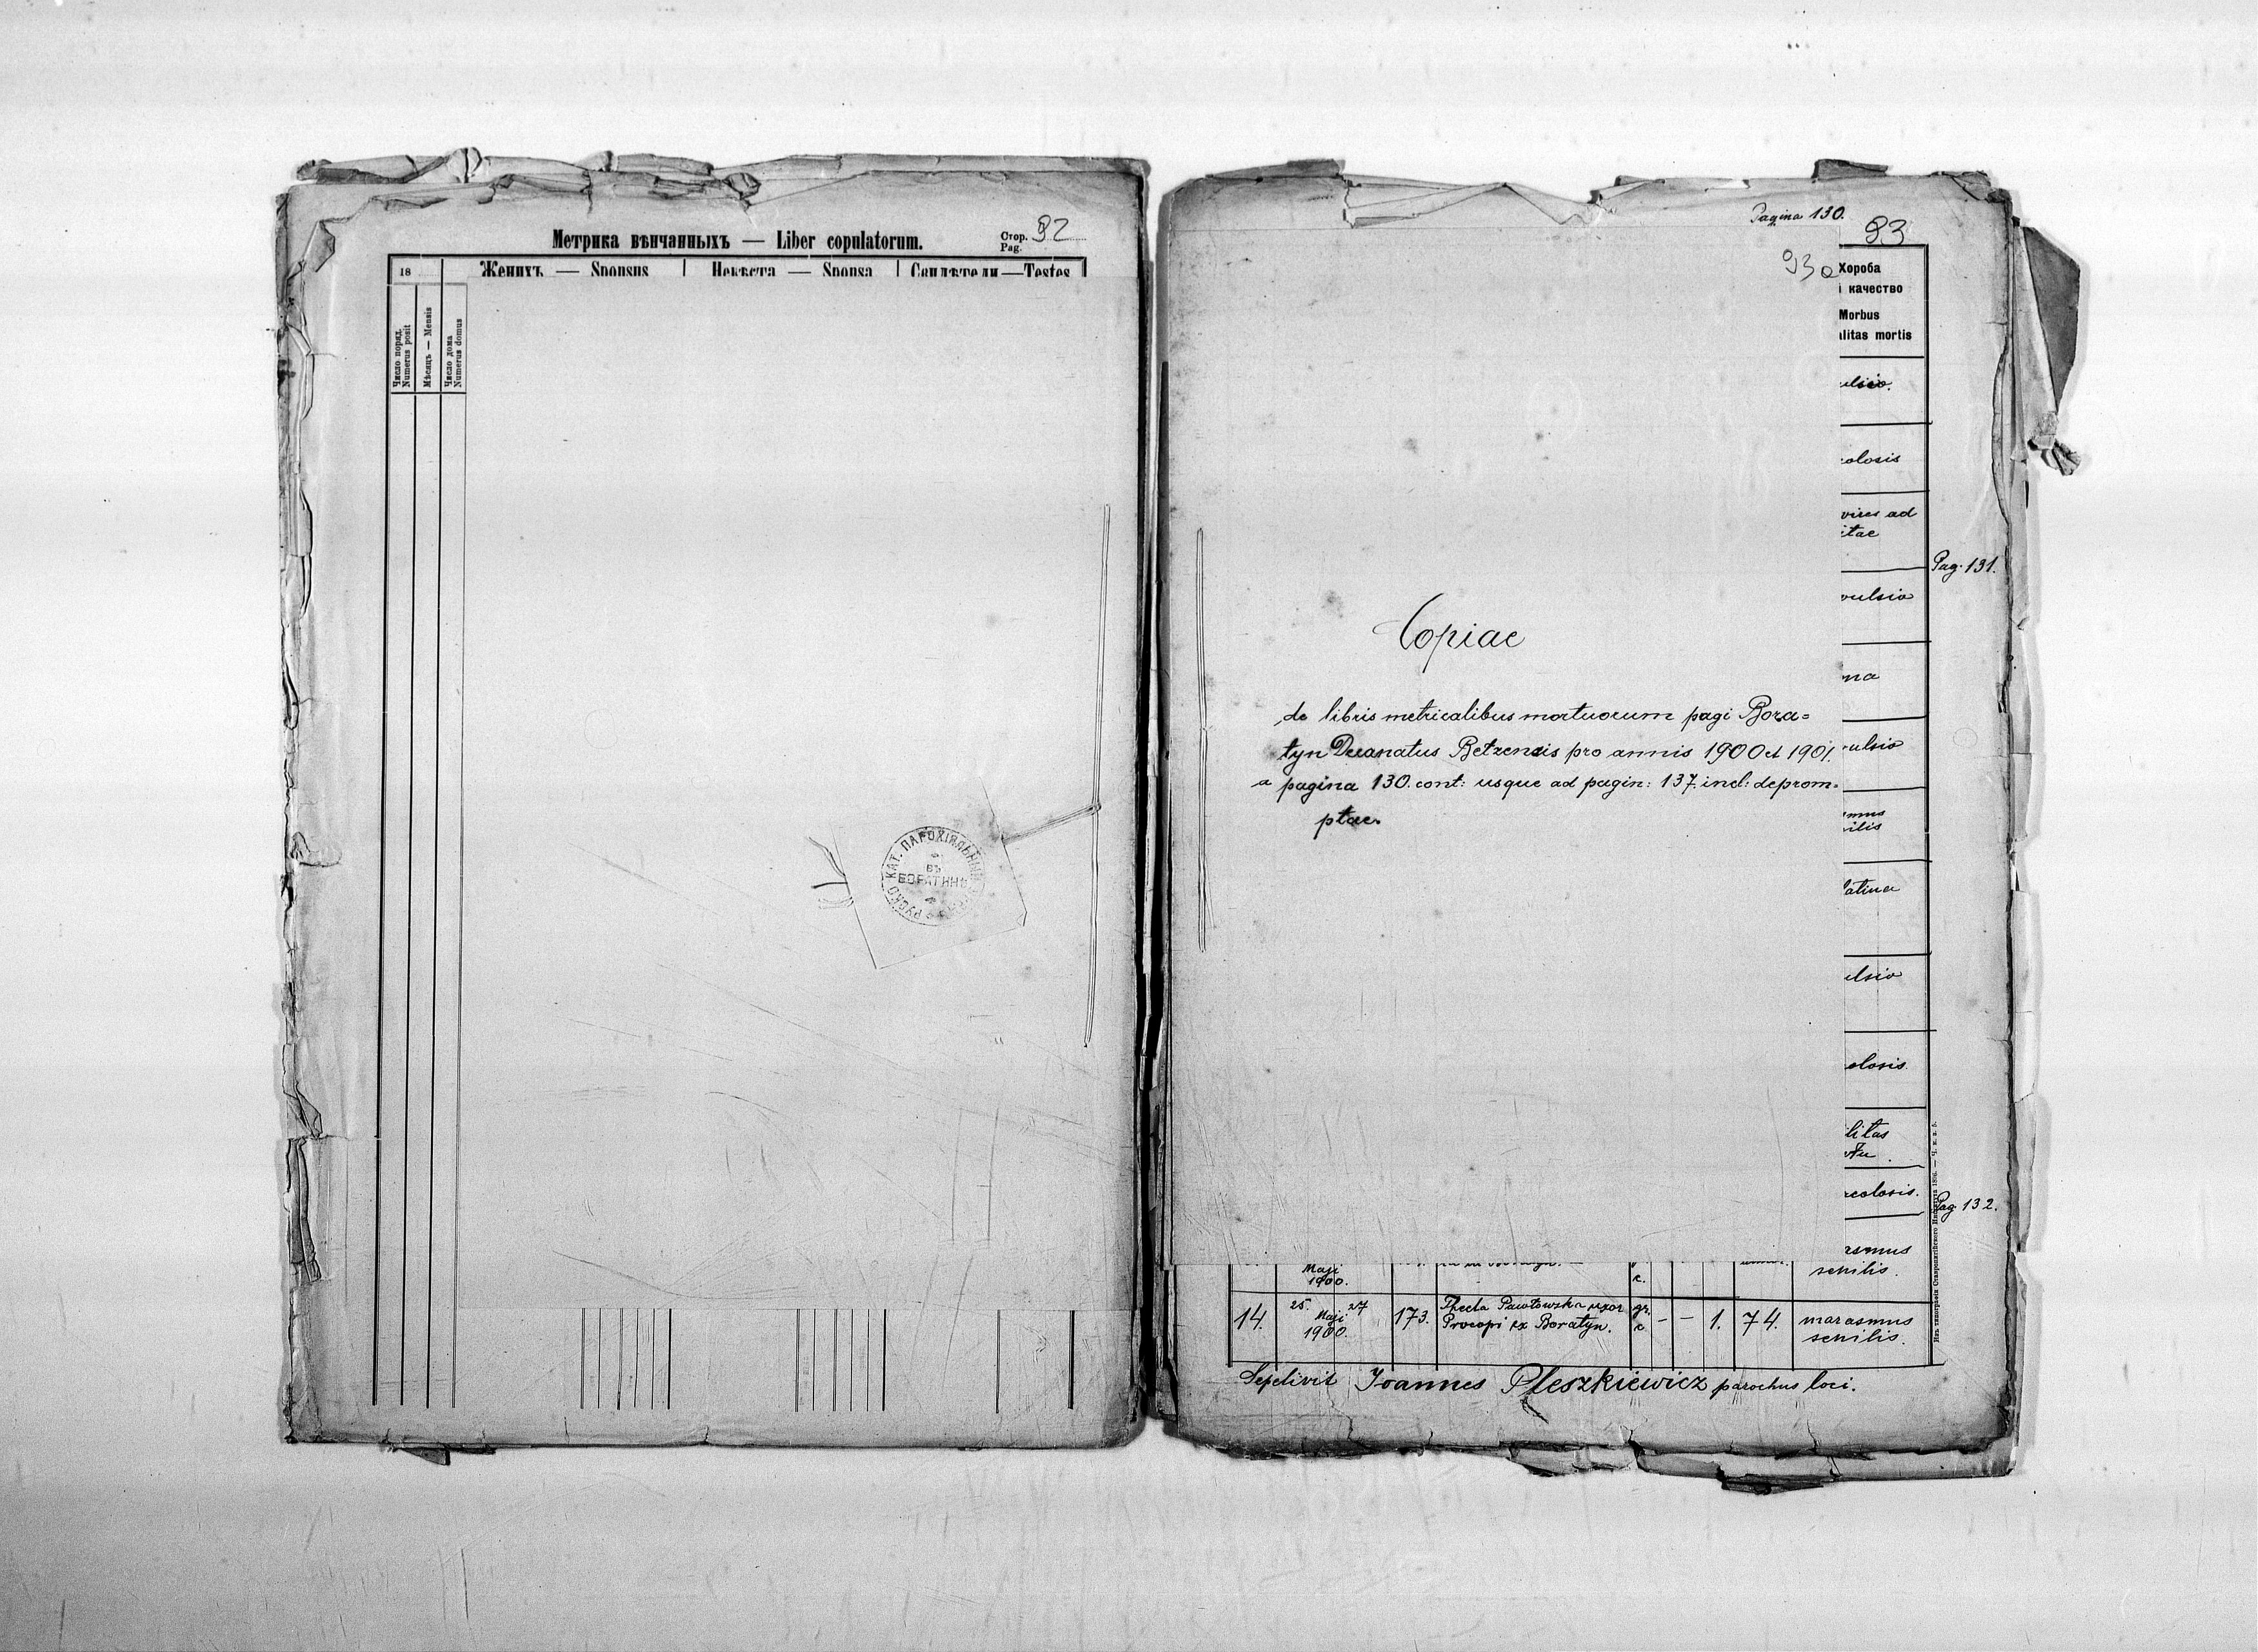 Метрика вѣнчанныхъ — Liber copulatorum.
Стор.
Pag. 92
18
Женихъ — Sponsus
Невѣста — Sponsa
Свидѣтели—Testes
Число поряд.
Numerus posit
Мѣсяцъ — Mensis
Число дома
Numerus domus
КАТ. ПАРОХІЯЛЬНЫЙ
ВЪ
БОРАТИНѢ
Pagina 130.
93
93a
Хороба
і качество
Morbus
litas mortis
ulsio.
olosis
vires ad
itae
Pag. 131.
vulsio
ma
ulsio
mus
ilis
latina
ulsio
olosis.
litas
rcolosis.
Pag. 132.
rasmus
senilis.
Copiae
de libris metricalibus mortuorum pagi Bora=
tyn Decanatus Betzensis pro annis 1900 et 1901.
a pagina 130. cont: usque ad pagin: 137. incl: deprom=
ptae.
Maji
1900.
c.
14. 25. 27 Maji 1900. 173. Thecla Pawłowska uxor gr. — — 1. 74. marasmus
Procopi ex Boratyn. c. senilis.
Sepelivit Joannes Pleszkiewicz parochus loci.